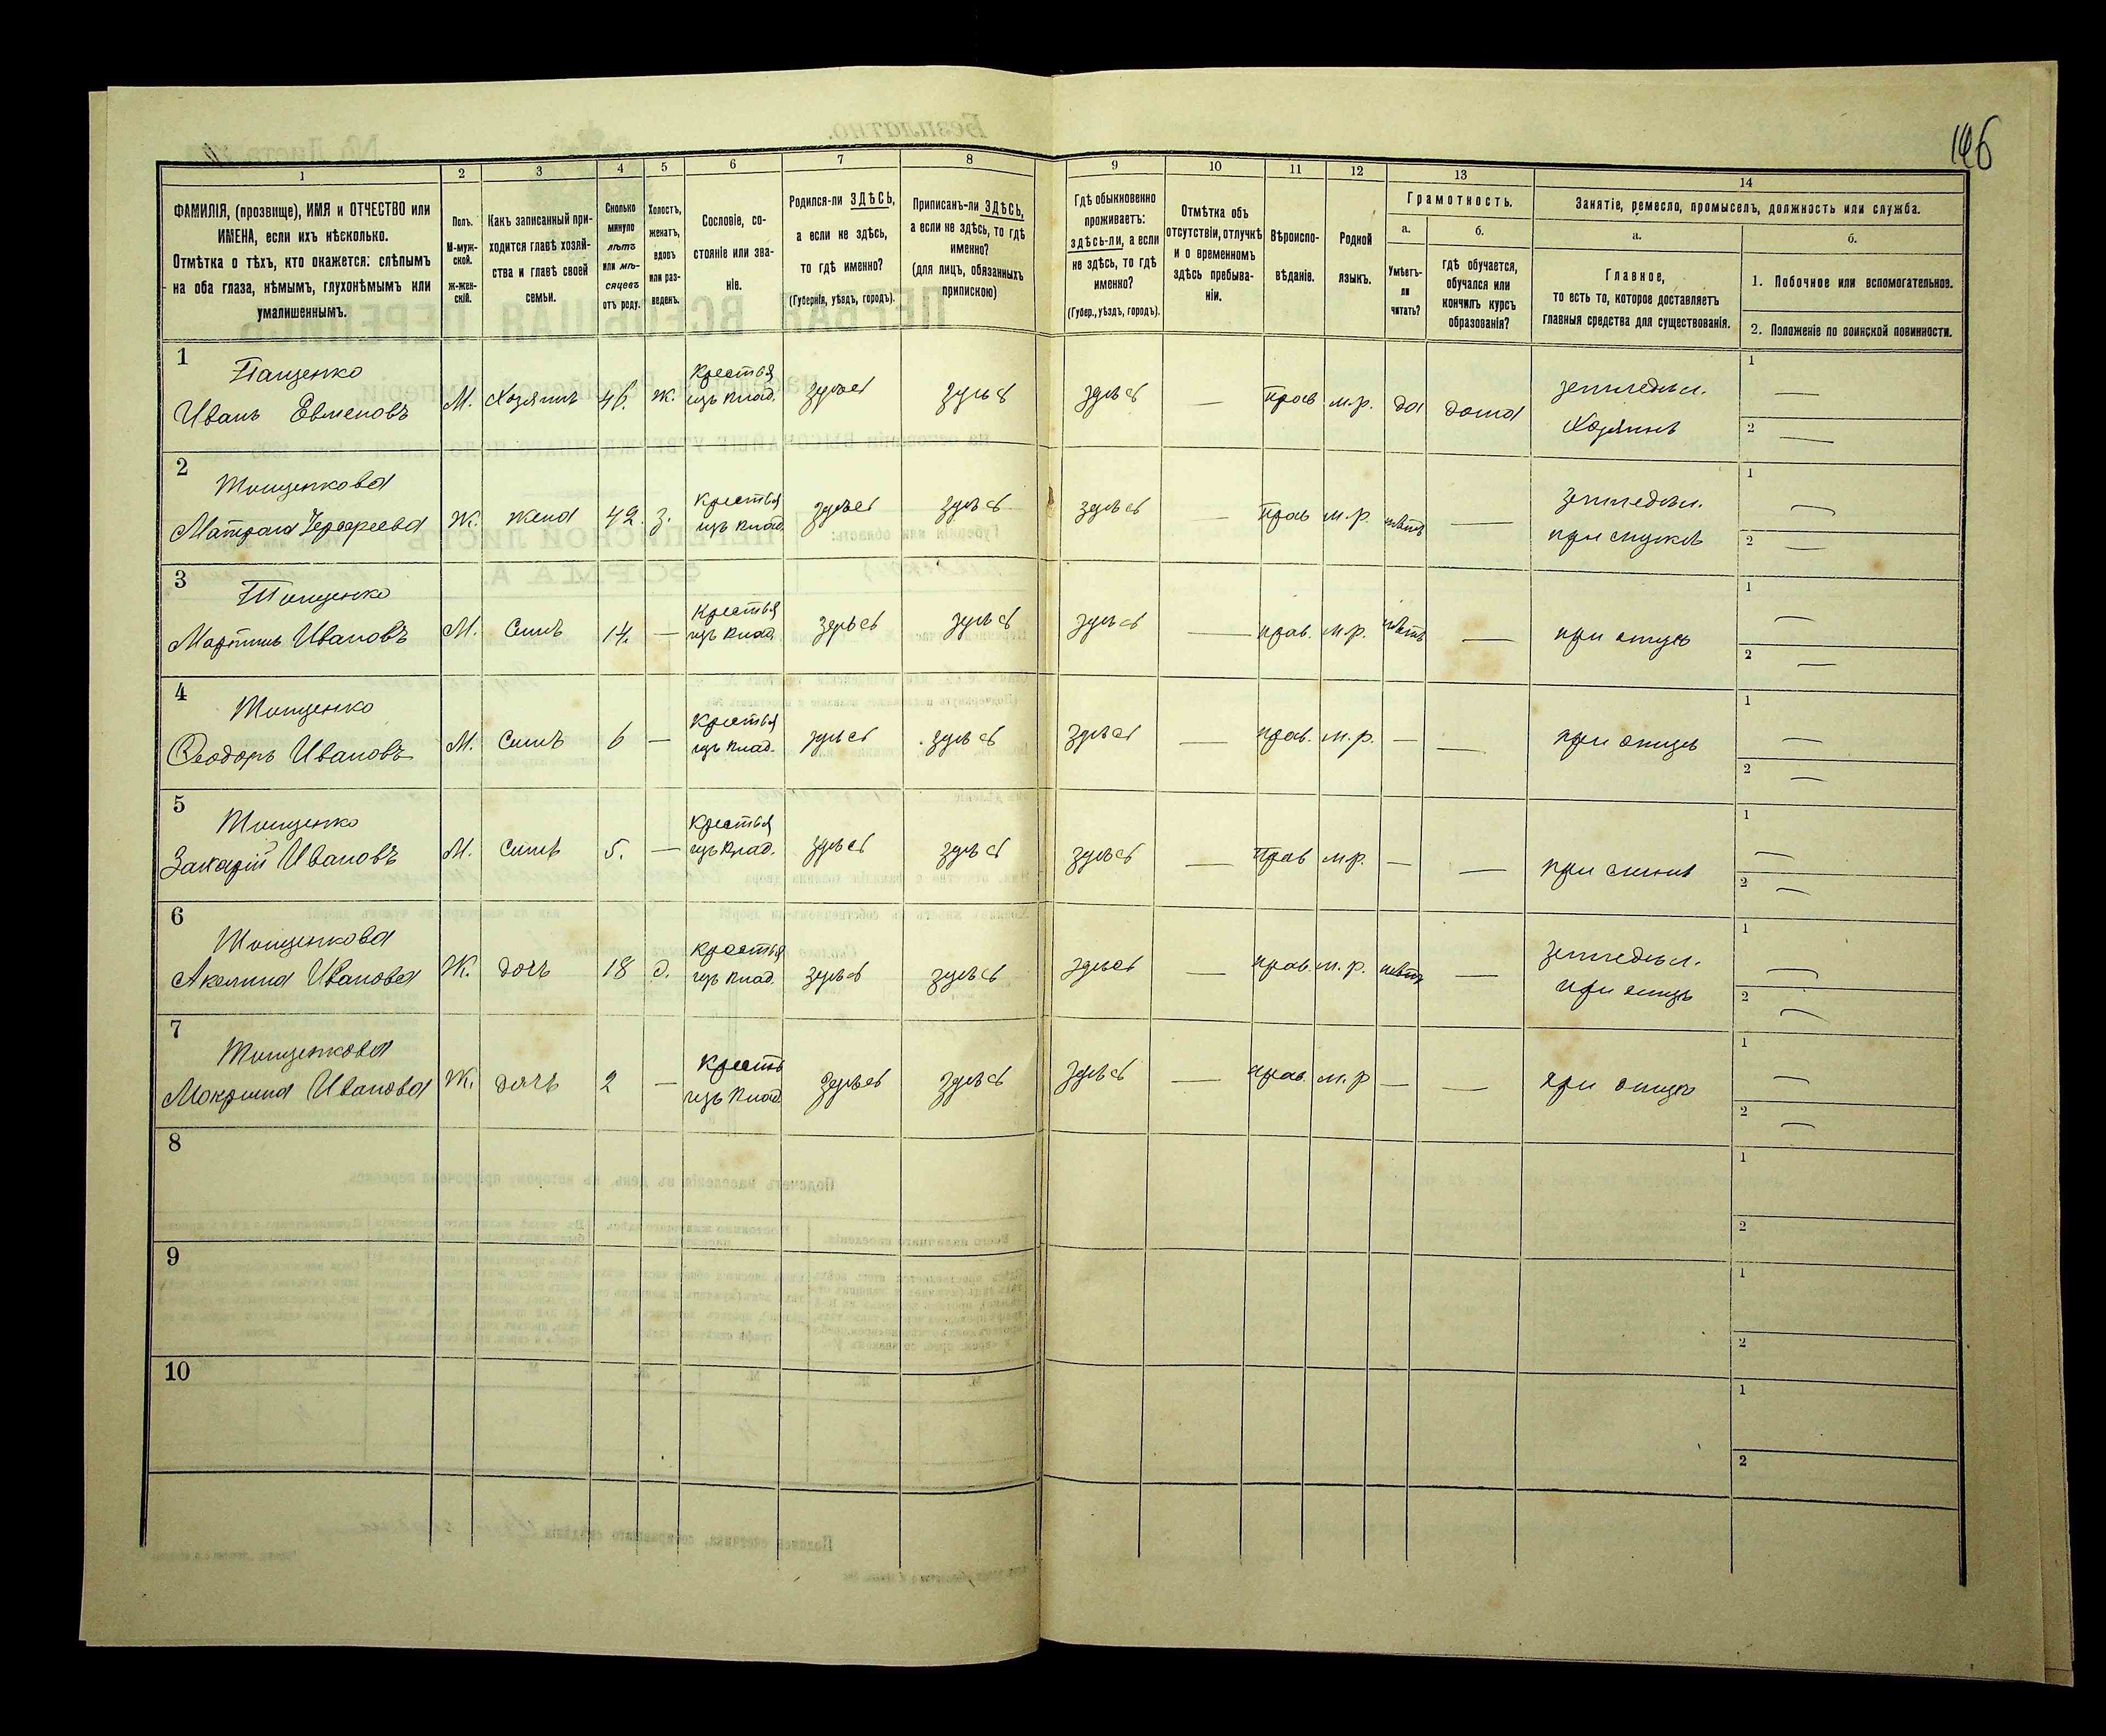 146
1 2 3 4 5 6 7 8 9 10 11 12 13 14
ФАМИЛІЯ, (прозвище), ИМЯ и ОТЧЕСТВО или
ИМЕНА, если ихъ нѣсколько.
Отмѣтка о тѣхъ, кто окажется: слѣпымъ
на оба глаза, нѣмымъ, глухонѣмымъ или
умалишеннымъ.
Полъ.
М-муж-
ской.
Ж-жен-
скій.
Какъ записанный при-
ходится главѣ хозяй-
ства и главѣ своей
семьи.
Сколько
минуло
лѣтъ
или мѣ-
сяцевъ
отъ роду.
Холостъ,
женатъ,
вдовъ
или раз-
веденъ.
Сословіе, со-
стояніе или зва-
ніе.
Родился-ли ЗДѢСЬ,
а если не здѣсь,
то гдѣ именно?
(Губернія, уѣздъ, городъ).
Приписанъ-ли ЗДѢСЬ,
а если не здѣсь, то гдѣ
именно?
(для лицъ, обязанныхъ
припискою)
Гдѣ обыкновенно
проживаетъ:
здѣсь-ли, а если
не здѣсь, то гдѣ
именно?
(Губер., уѣздъ, городъ).
Отмѣтка объ
отсутствіи, отлучкѣ
и о временномъ
здѣсь пребыва-
ніи.
Вѣроиспо-
вѣданіе.
Родной
языкъ.
Грамотность.
а.
Умѣетъ-
ли
читать?
б.
гдѣ обучается,
обучался или
кончилъ курсъ
образованія?
Занятіе, ремесло, промыселъ, должность или служба.
а.
Главное,
то есть то, которое доставляетъ
главныя средства для существованія.
б.
1. Побочное или вспомогательное.
2. Положеніе по воинской повинности.
1
Тищенко Крестья земледѣл. 1 —
Иванъ Евменовъ М. Хозяинъ 46. ж. изъ влад. здѣсь здѣсь здѣсь — прав м.р. да дома Хозяинъ 2 —
2
Тищенкова Крестья земледѣл. 1 —
Ж. жена 42. з. изъ влад. здѣсь здѣсь здѣсь — прав м.р. нѣтъ — при мужѣ 2 —
3
Тищенко Крестья 1 —
Мартинъ Ивановъ М. Сынъ 14. — изъ влад. здѣсь здѣсь здѣсь — прав. м.р. нѣтъ — при отцѣ 2 —
4
Тищенко Крестья 1 —
Ѳеодоръ Ивановъ М. Сынъ 6 — изъ влад. здѣсь здѣсь здѣсь — прав. м.р. — — при отцѣ 2 —
5
Тищенко Крестья 1 —
Захарій Ивановъ М. Сынъ 5. — изъ влад. здѣсь здѣсь здѣсь — прав м.р. — — при 2 —
6
Тищенкова Крестья земледѣл. 1 —
Акилина Иванова Ж. дочь 18 д. изъ влад. здѣсь здѣсь здѣсь — прав. м.р. нѣтъ — при отцѣ 2 —
7
Тищенкова Кресть 1 —
Мокрина Иванова Ж. дочь 2 — изъ влад. здѣсь здѣсь здѣсь — прав. м.р — — при отцѣ 2 —
8 1
2
9 1
2
10 1
2